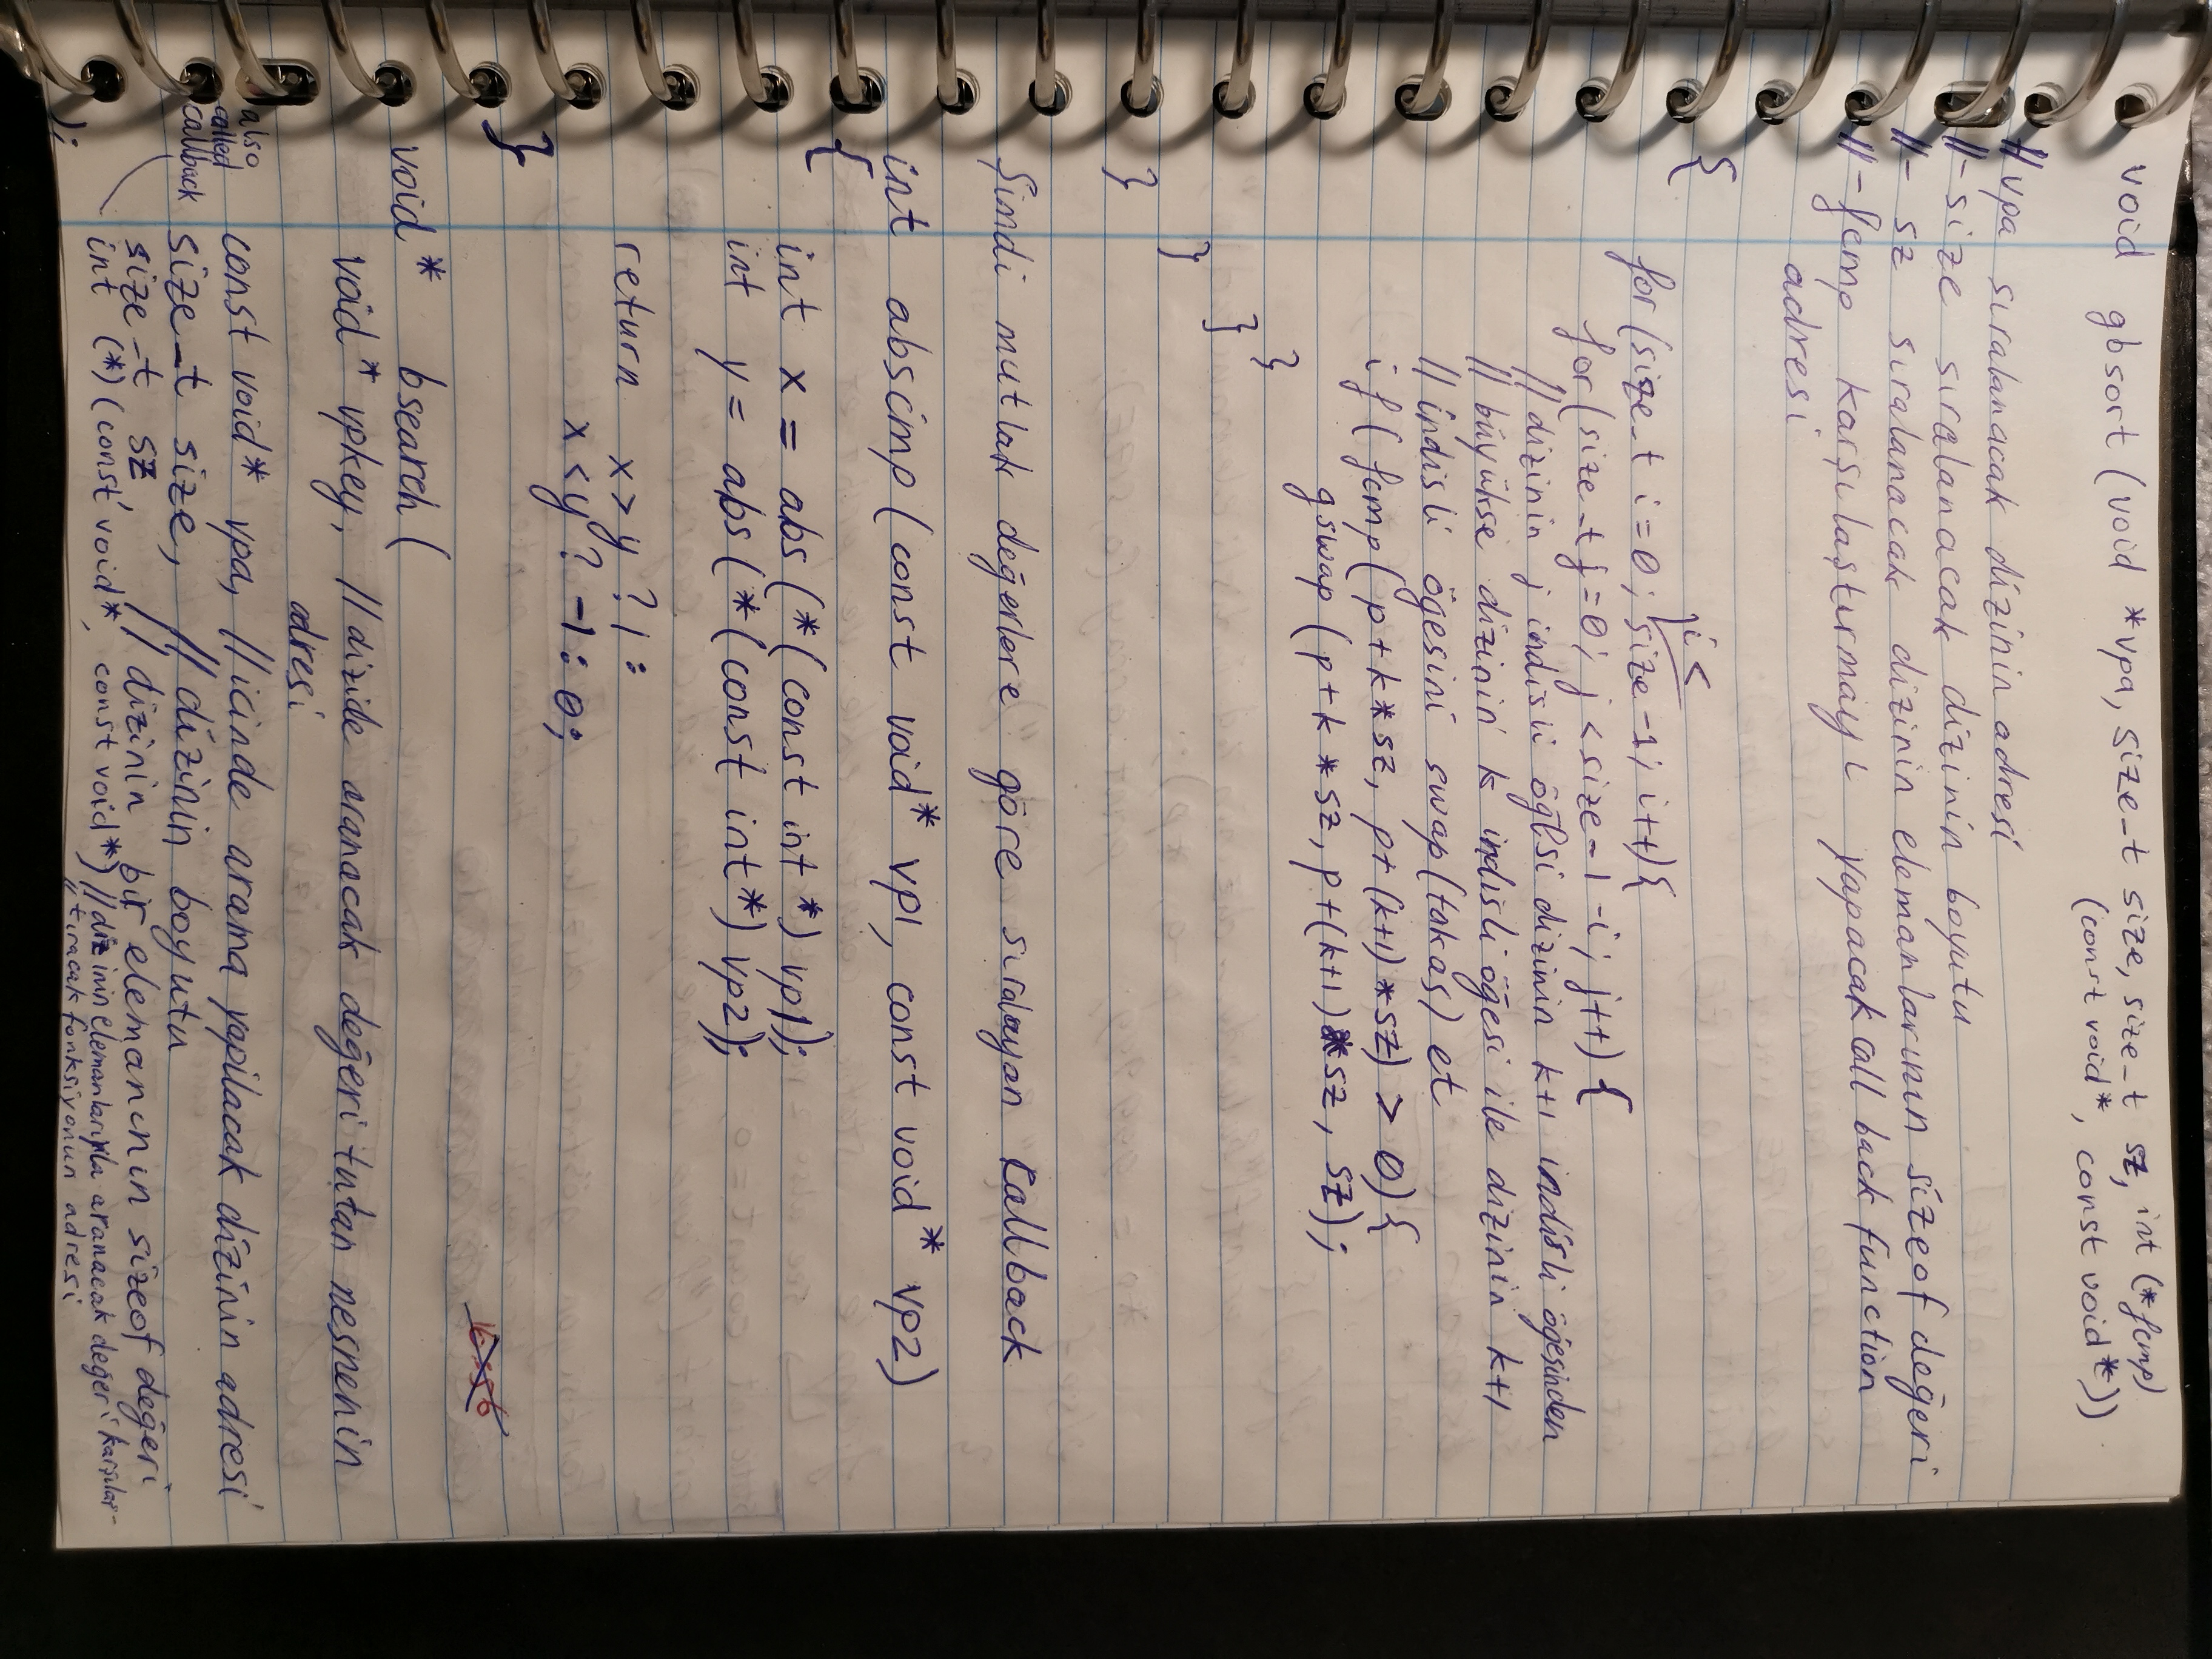 void gbsort (void *vpa, size_t size, size_t sz, int (*fcmp)
(const void*, const void*))
// vpa sıralanacak dizinin adresi
//- size sıralanacak dizinin boyutu
//- sz sıralanacak dizinin elemanlarının sizeof değeri
//- fcmp karşılaştırmayı yapacak call back function
adresi
{
i <
for (size_t i=0; size-1; i++){
for (size_t j=0; j <size-1-i; j++) {
// dizinin j indisli öğesi dizinin k+1 indisli öğesinden
// büyükse dizinin k indisli öğesi ile dizinin k+1
// indisli öğesini swap (takas) et
if ( fcmp ( p+k*sz, p+(k+1) *sz) > 0) {
gswap (p+k *sz, p+(k+1)*sz, sz);
}
}
}
}
Şimdi mutlak değerlere göre sıralayan callback
int abscmp (const void* vp1, const void* vp2)
{
int x = abs (*( const int *) vp1);
int y = abs (*( const int*) vp2);
return x>y ? 1 :
x<y ? -1 : 0;
}
void* bsearch (
void* vpkey, // dizide aranacak değeri tutan nesnenin
adresi
const void* vpa, // icinde arama yapilacak dizinin adresi
size_t size, // dizinin boyutu
size_t sz, // dizinin bir elemanının sizeof değeri
int (*) (const void*, const void*) // dizinin elemanlarıyla aranacak değeri karşılaş-
// tıracak fonksiyonun adresi
);
also
called
callback